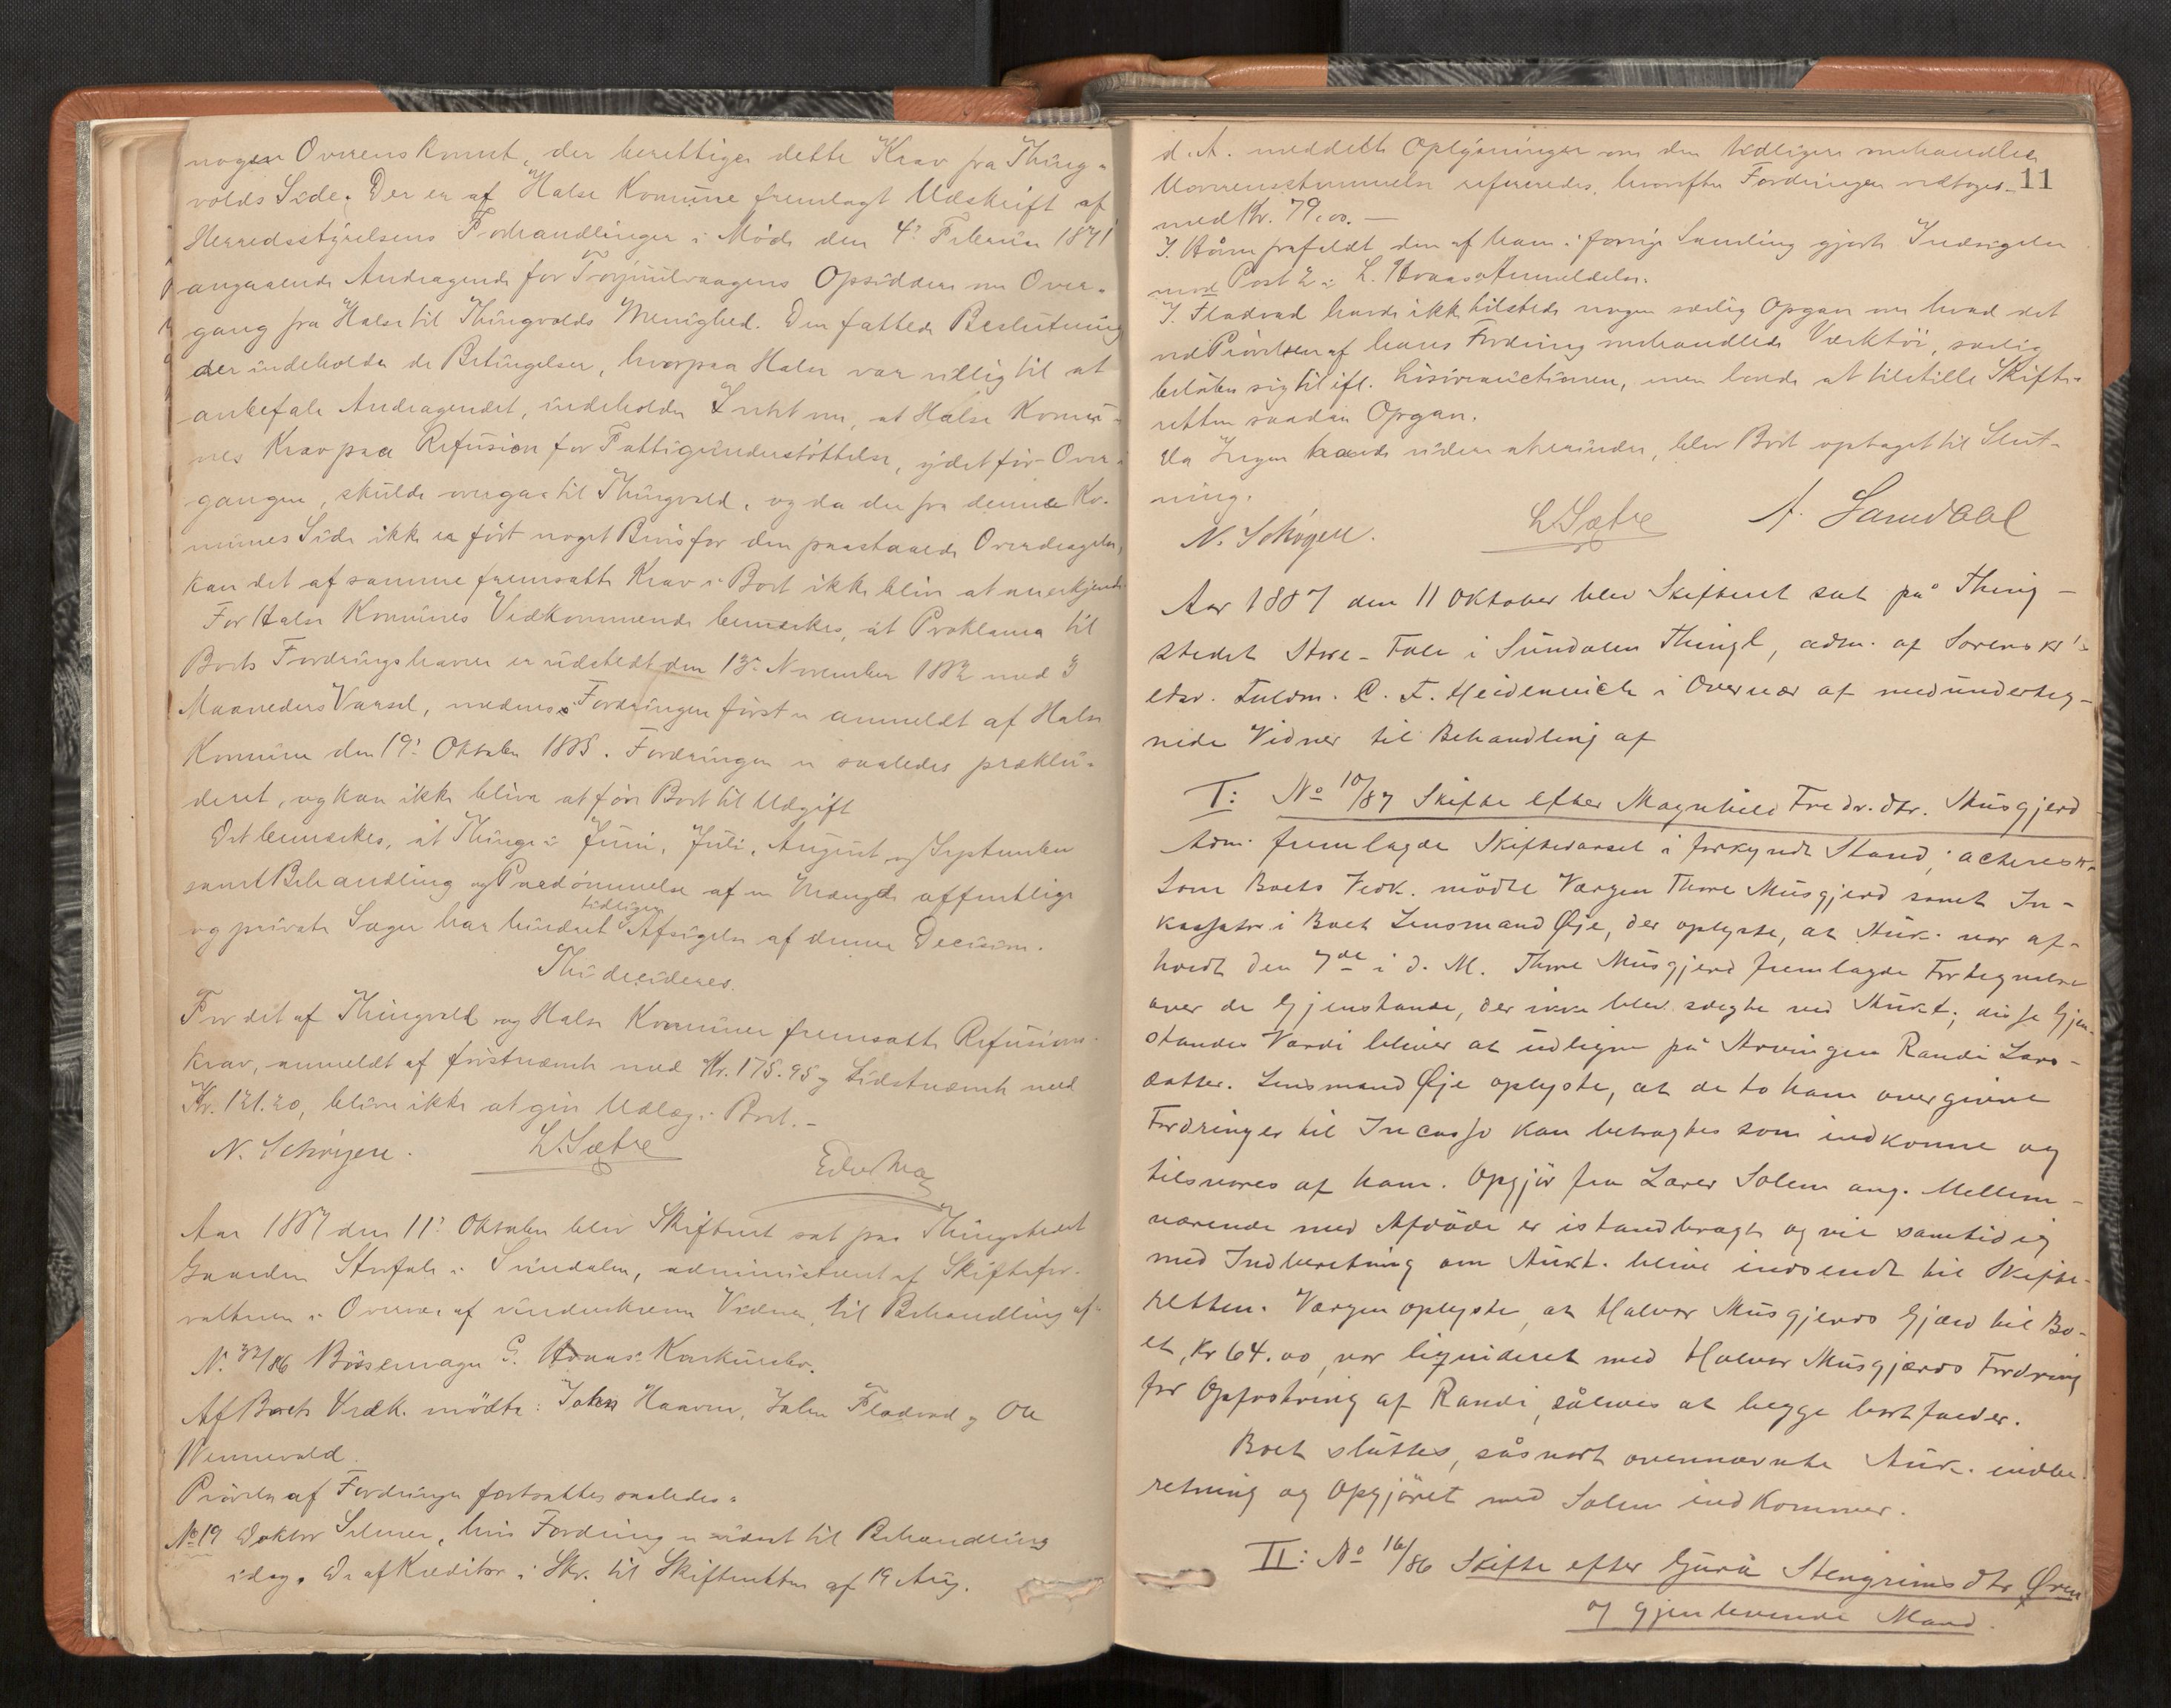 nogen Overenskomst, der berettiger dette Krav fra Thing-
volds Side. Der er af Halse Komune fremlagt Udskrift af
Herredsstyrelsens Forhandlinger i Möde den 4' Februar 1871
angaaende Andragende for Opsiddere om Over-
gang fra Halse til Thingvolds Menighed. Den fattede Beslutning
der indeholder de Betingelser, hvorpaa Halse var villig til at
anbefale Andragendet, indeholder Intet om, at Halse Komu-
nes Krav paa Refusion for Fattigunderstöttelse, ydet för Over-
gangen, skulde overgaa til Thingvold, og da der fra denne Ko-
munes Side ikke er fört noget Bevis for den paastaaede Overdragelse,
kan det af samme fremsatte Krav i Boet ikke blive at anerkjende
For Halse Komunes Vedkommende bemærkes, at Proklama til
Boets Fordringshavere er udstedt den 13' November 1882 med 3
Maaneders Varsel, medens Fordringen först er anmeldt af Halse
Komune den 19' Oktober 1885. Fordringen er saaledes præklu-
deret, og kan ikke blive at före Boet til Udgift
Det bemærkes, at Thinge i Juni, Juli, August og September
samt Behandling og Paadömmelse af en Mængde offentlige
og private Sager har hindret tidligere Afsigelse af denne Decision.
Thi decideres.
For det af Thingvold og Halse Komuner fremsatte Refusions-
krav, anmeldt af förstnævnte med Kr. 175.95 og sidstnævnte med
Kr. 121.20, bliver ikke at give Udlæg i Boet. -
N. Schögen. L. Sætre
Aar 1887 den 11' Oktober blev Skifteret sat paa Thingstedet
Gaarden Storfale i Sundalen, administreret af Skiftefor-
valteren i Overvær af underskrevne Vidner, til Behandling af:
N. 32/86 Bössemager G. Hoaas' Konkursbo.
Af Boets Vedk. mödte: John Haaven, John Fladvad og Ole
Wennevold.
Prövelse af Fordringer fortsattes saaledes:
No 19 Doktor Selmer, hvis Fordring er udsat til Behandling
idag. De af Kreditor i Skr. til Skifteretten af 19 Aug.
11
d. A. meddelte Oplysninger om den tidligere omhandlede
Uoverensstemmelse refereredes, hvorefter Fordringen vedtoges
med Kr. 79.00. -
J. Håven frafaldt den af ham i forrige Samling gjorte Indsigelse
mod Post 2 i L. Hoaas' Anmeldelse.
J. Fladvad havde ikke tilstede nogen særlig Opgave om hvad det
ved Prövelsen af hans Fordring omhandlede Verktöi, særlig
belöber sig til ifl. Lösöreauctionen, men lovede at tilstille Skifte-
retten saadan Opgave.
Da Ingen havde videre at erindre, blev Boet optaget til Slut-
ning.
N. Schögen. L Sætre A. Samdahl
Aar 1887 den 11 Oktober blev Skifteret sat på Thing-
stedet Store-Fale i Sundalen Thingl, adm. af Sorenskr's
edsv. Fuldm. C. F. Heidenreich i Overvær af medunderteg-
nede Vidner til Behandling af
I: No 10/87 Skifte efter Magnhild Fredr.dtr. Musgjerd
Adm. fremlagde Skiftevarsel i forkyndt Stand, acteres
Som Boets Vedk. mödte Værgen Thore Musgjerd samt In-
kassator i Boet Lensmand Øje, der oplyste, at Auk. var af-
holdt den 7de i d. M. Thore Musgjerd fremlagde Fortegnelse
over de Gjenstande, der ikke blev solgte ved Aukt; disse Gjen-
standes Værdi bliver at udligne på Arvingen Randi Lars-
datter. Lensmand Øje oplyste, at de to ham overgivne
Fordringer til Incasso kan betragtes som indkomne og
tilsvares af ham. Opgjör fra Lærer Solem ang. Mellem-
værende med Afdöde er istandbragt og vil samtidig
med Indberetning om Aukt. blive indsendt til Skifte-
retten. Værgen oplyste, at Halvor Musgjerds Gjæld til Bo-
et, Kr 64.00, var liqvideret med Halvor Musgjærds Fordring
for Opfostring af Randi, således at begge bortfalder.
Boet sluttes, såsnart ovennævnte Auk. indbe-
retning og Opgjöret med Solem indkommer.
II: No 16/86 Skifte efter Guru Stengrimsdtr Øren
og gjenlevende Mand.